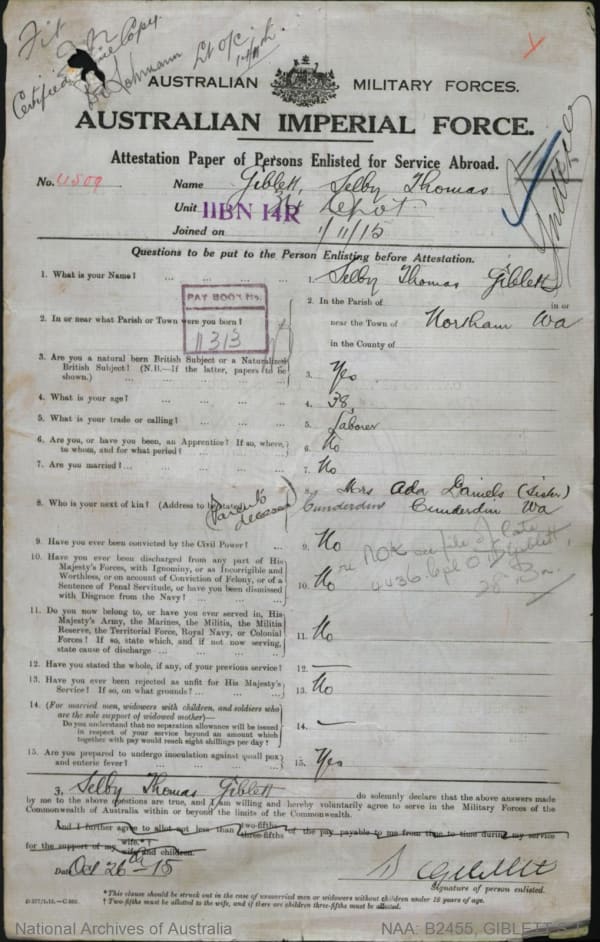 Fit
Certified True Copy
Lohmann Lt O/C
AUSTRALIAN MILITARY FORCES.
AUSTRALIAN IMPERIAL FORCE.
Attestation Paper of Persons Enlisted for Service Abroad.
No. 4509 Name Giblett, Selby Thomas
Unit 11BN 14R Depot
Joined on 1/11/15
Questions to be put to the Person Enlisting before Attestation.
1. What is your Name? ... 1. Selby Thomas Giblett
PAY BOOK No.
1313
2. In or near what Parish or Town were you born? 2. In the Parish of in or
near the Town of Northam Wa
in the County of
3. Are you a natural born British Subject or a Naturalized
British Subject? (N.B.—If the latter, papers to be
shown.) ... 3. Yes
4. What is your age? ... 4. 38
5. What is your trade or calling? ... 5. Laborer
6. Are you, or have you been, an Apprentice? If so, where,
to whom, and for what period? ... 6. No
7. Are you married? ... 7. No
8. Who is your next of kin? (Address to be stated) (Parents deceased) 8. Mrs Ada Daniels (Sister)
Cunderdin Cunderdin Wa
9. Have you ever been convicted by the Civil Power? ... 9. No
re NOK see file of late
4436 Cpl O Giblett,
28 Bn.
10. Have you ever been discharged from any part of His
Majesty's Forces, with Ignominy, or as Incorrigible and
Worthless, or on account of Conviction of Felony, or of a
Sentence of Penal Servitude, or have you been dismissed
with Disgrace from the Navy? ... 10. No
11. Do you now belong to, or have you ever served in, His
Majesty's Army, the Marines, the Militia, the Militia
Reserve, the Territorial Force, Royal Navy, or Colonial
Forces? If so, state which, and if not now serving,
state cause of discharge ... 11. No
12. Have you stated the whole, if any, of your previous service? 12. —
13. Have you ever been rejected as unfit for His Majesty's
Service? If so, on what grounds? ... 13. No
14. (For married men, widowers with children, and soldiers who
are the sole support of widowed mother)—
Do you understand that no separation allowance will be issued
in respect of your service beyond an amount which
together with pay would reach eight shillings per day? 14. —
15. Are you prepared to undergo inoculation against small pox
and enteric fever? ... 15. Yes
I, Selby Thomas Giblett do solemnly declare that the above answers made
by me to the above questions are true, and I am willing and hereby voluntarily agree to serve in the Military Forces of the
Commonwealth of Australia within or beyond the limits of the Commonwealth.
And I further agree to allot not less than two-fifths three-fifths of the pay payable to me from time to time during my service
for the support of my wife.*† wife and children.
Date Oct 26th 15 S Giblett
Signature of person enlisted.
*This clause should be struck out in the case of unmarried men or widowers without children under 18 years of age.
† Two-fifths must be allotted to the wife, and if there are children three-fifths must be allotted.
National Archives of Australia NAA: B2455, GIBLETT S T